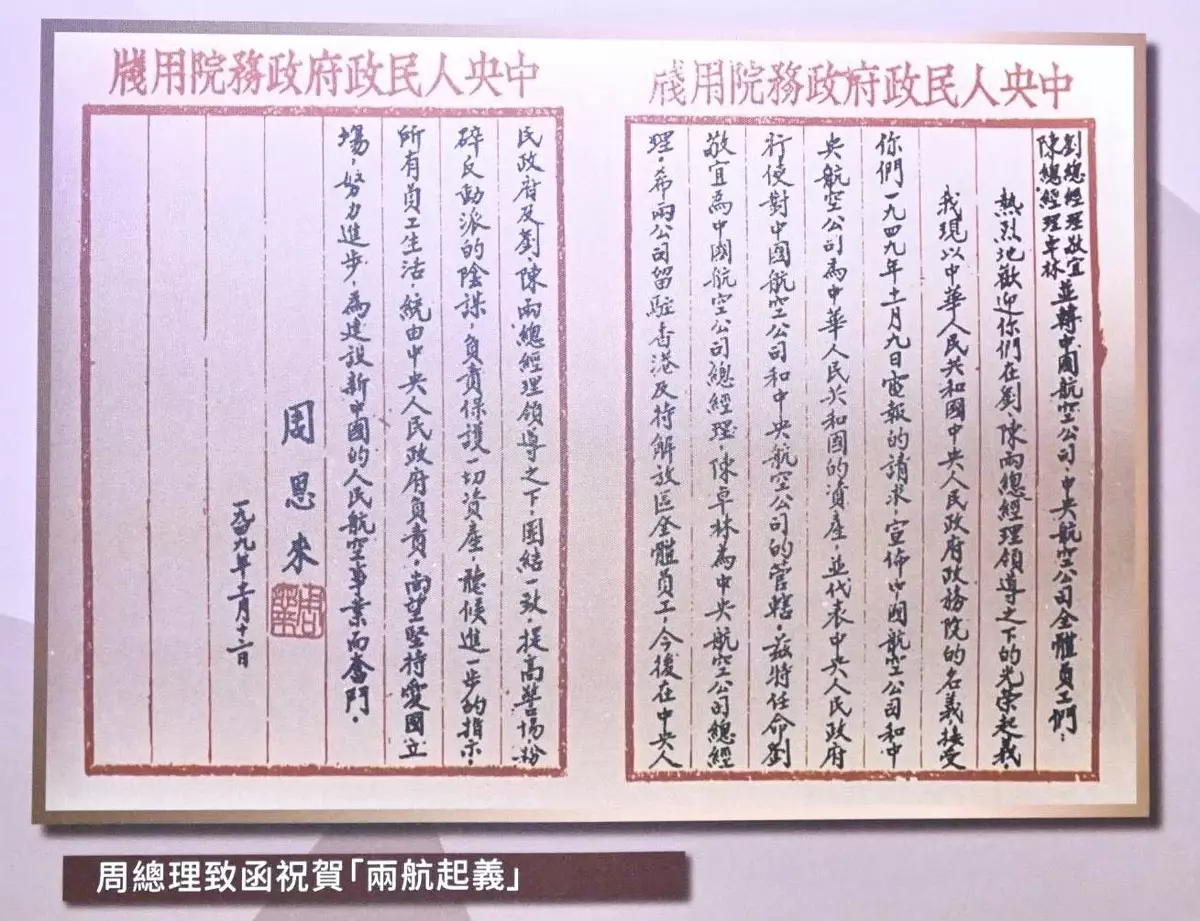 中央人民政府政務院用牋
劉總經理敬宜
陳總經理卓林
並轉中國航空公司、中央航空公司全體員工們:
熱烈地歡迎你們在劉陳兩總經理領導之下的光榮起義。
我現以中華人民共和國中央人民政府政務院的名義接受
你們一九四九年十一月九日電報的請求宣佈中國航空公司和中
央航空公司為中華人民共和國的資產,並代表中央人民政府
行使對中國航空公司和中央航空公司的管轄。茲特任命劉
敬宜爲中國航空公司總經理,陳卓林為中央航空公司總經
理。希兩公司留駐香港及待解放區全體員工,今後在中央人
中央人民政府政務院用牋
民政府及劉陳兩總經理領導之下,團結一致,提高警惕粉
碎反動派的陰謀,負責保護一切資產,聽候進一步的指示。
所有員工生活,統由中央人民政府負責。尚望堅持愛國立
場,努力進步,為建設新中國的人民航空事業而奮鬥。
周恩來
一九四九年十一月十二日
周總理致函祝賀「兩航起義」